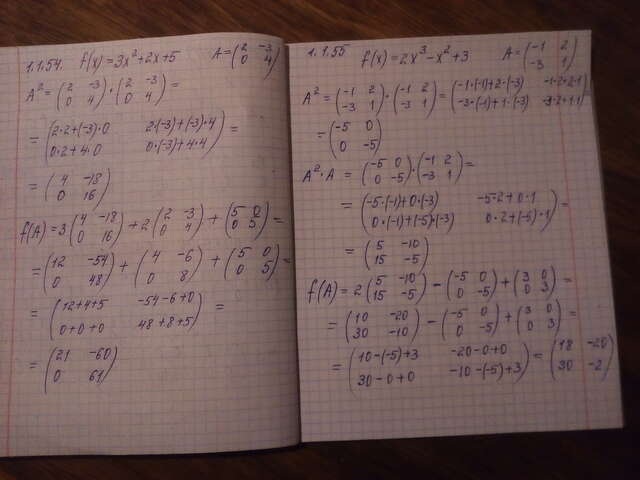 1.1.54. f(x)=3x²+2x+5 A=(2 -3
0 4)
A²=(2 -3
0 4)·(2 -3
0 4)=
=(2·2+(-3)·0 2·(-3)+(-3)·4
0·2+4·0 0·(-3)+4·4)=
=(4 -18
0 16)
f(A)=3(4 -18
0 16)+2(2 -3
0 4)+(5 0
0 5)=
=(12 -54
0 48)+(4 -6
0 8)+(5 0
0 5)=
=(12+4+5 -54-6+0
0+0+0 48+8+5)=
=(21 -60
0 61)
1.1.55 f(x)=2x³-x²+3 A=(-1 2
-3 1)
A²=(-1 2
-3 1)·(-1 2
-3 1)=(-1·(-1)+2·(-3) -1·2+2·1
-3·(-1)+1·(-3) -3·2+1·1)=
=(-5 0
0 -5)
A²·A=(-5 0
0 -5)·(-1 2
-3 1)=
=(-5·(-1)+0·(-3) -5·2+0·1
0·(-1)+(-5)·(-3) 0·2+(-5)·1)=
=(5 -10
15 -5)
f(A)=2(5 -10
15 -5)-(-5 0
0 -5)+(3 0
0 3)=
=(10 -20
30 -10)-(-5 0
0 -5)+(3 0
0 3)=
=(10-(-5)+3 -20-0+0
30-0+0 -10-(-5)+3)=(18 -20
30 -2)